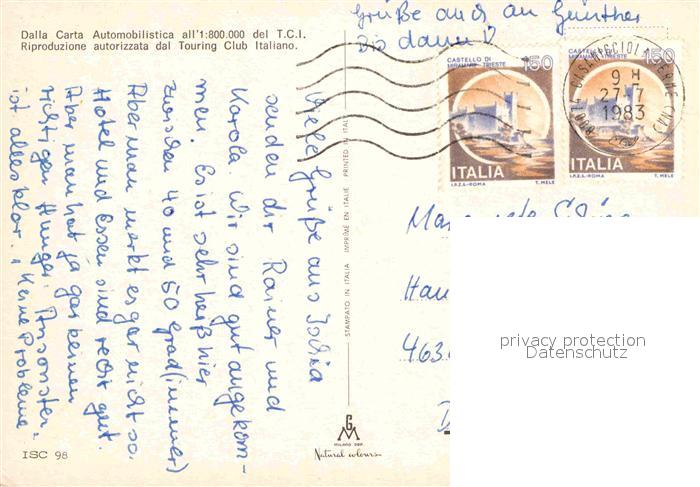 Dalla Carta Automobilistica all'1:800.000 del T.C.I.
Riproduzione autorizzata dal Touring Club Italiano.
Grüße auch an Günther
Bis dann!
Viele Grüße aus Ischia
senden dir Rainer und
Karola. Wir sind gut angekom-
men. Es ist sehr heiß hier
zwischen 40 und 50 grad (immer)
Aber man merkt es gar nicht so.
Hotel und Essen sind recht gut.
Aber man hat ja gar keinen
richtigen Hunger. Ansonsten
ist alles klar. "Keine Probleme"
STAMPATO IN ITALIA IMPRIMÉ EN ITALIE PRINTED IN ITAL
G
M
MILANO
Natural colours
ISC 98
CASTELLO DI
MIRAMARE-TRIESTE
150
ITALIA
I.P.Z.S.-ROMA T. MELE
CASTELLO DI
MIRAMARE-TRIESTE
150
ITALIA
I.P.Z.S.-ROMA T. MELE
80074 CASAMICCIOLA TERME (NA)
9 H
27-7
1983
Han
463
D
privacy protection
Datenschutz